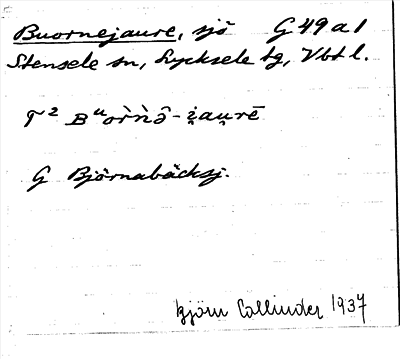 Buornejaure, sjö G 49 a 1
Stensele sn, Lycksele tg, Vbt l.
G Björnabäcksj.
Björn Collinder 1937